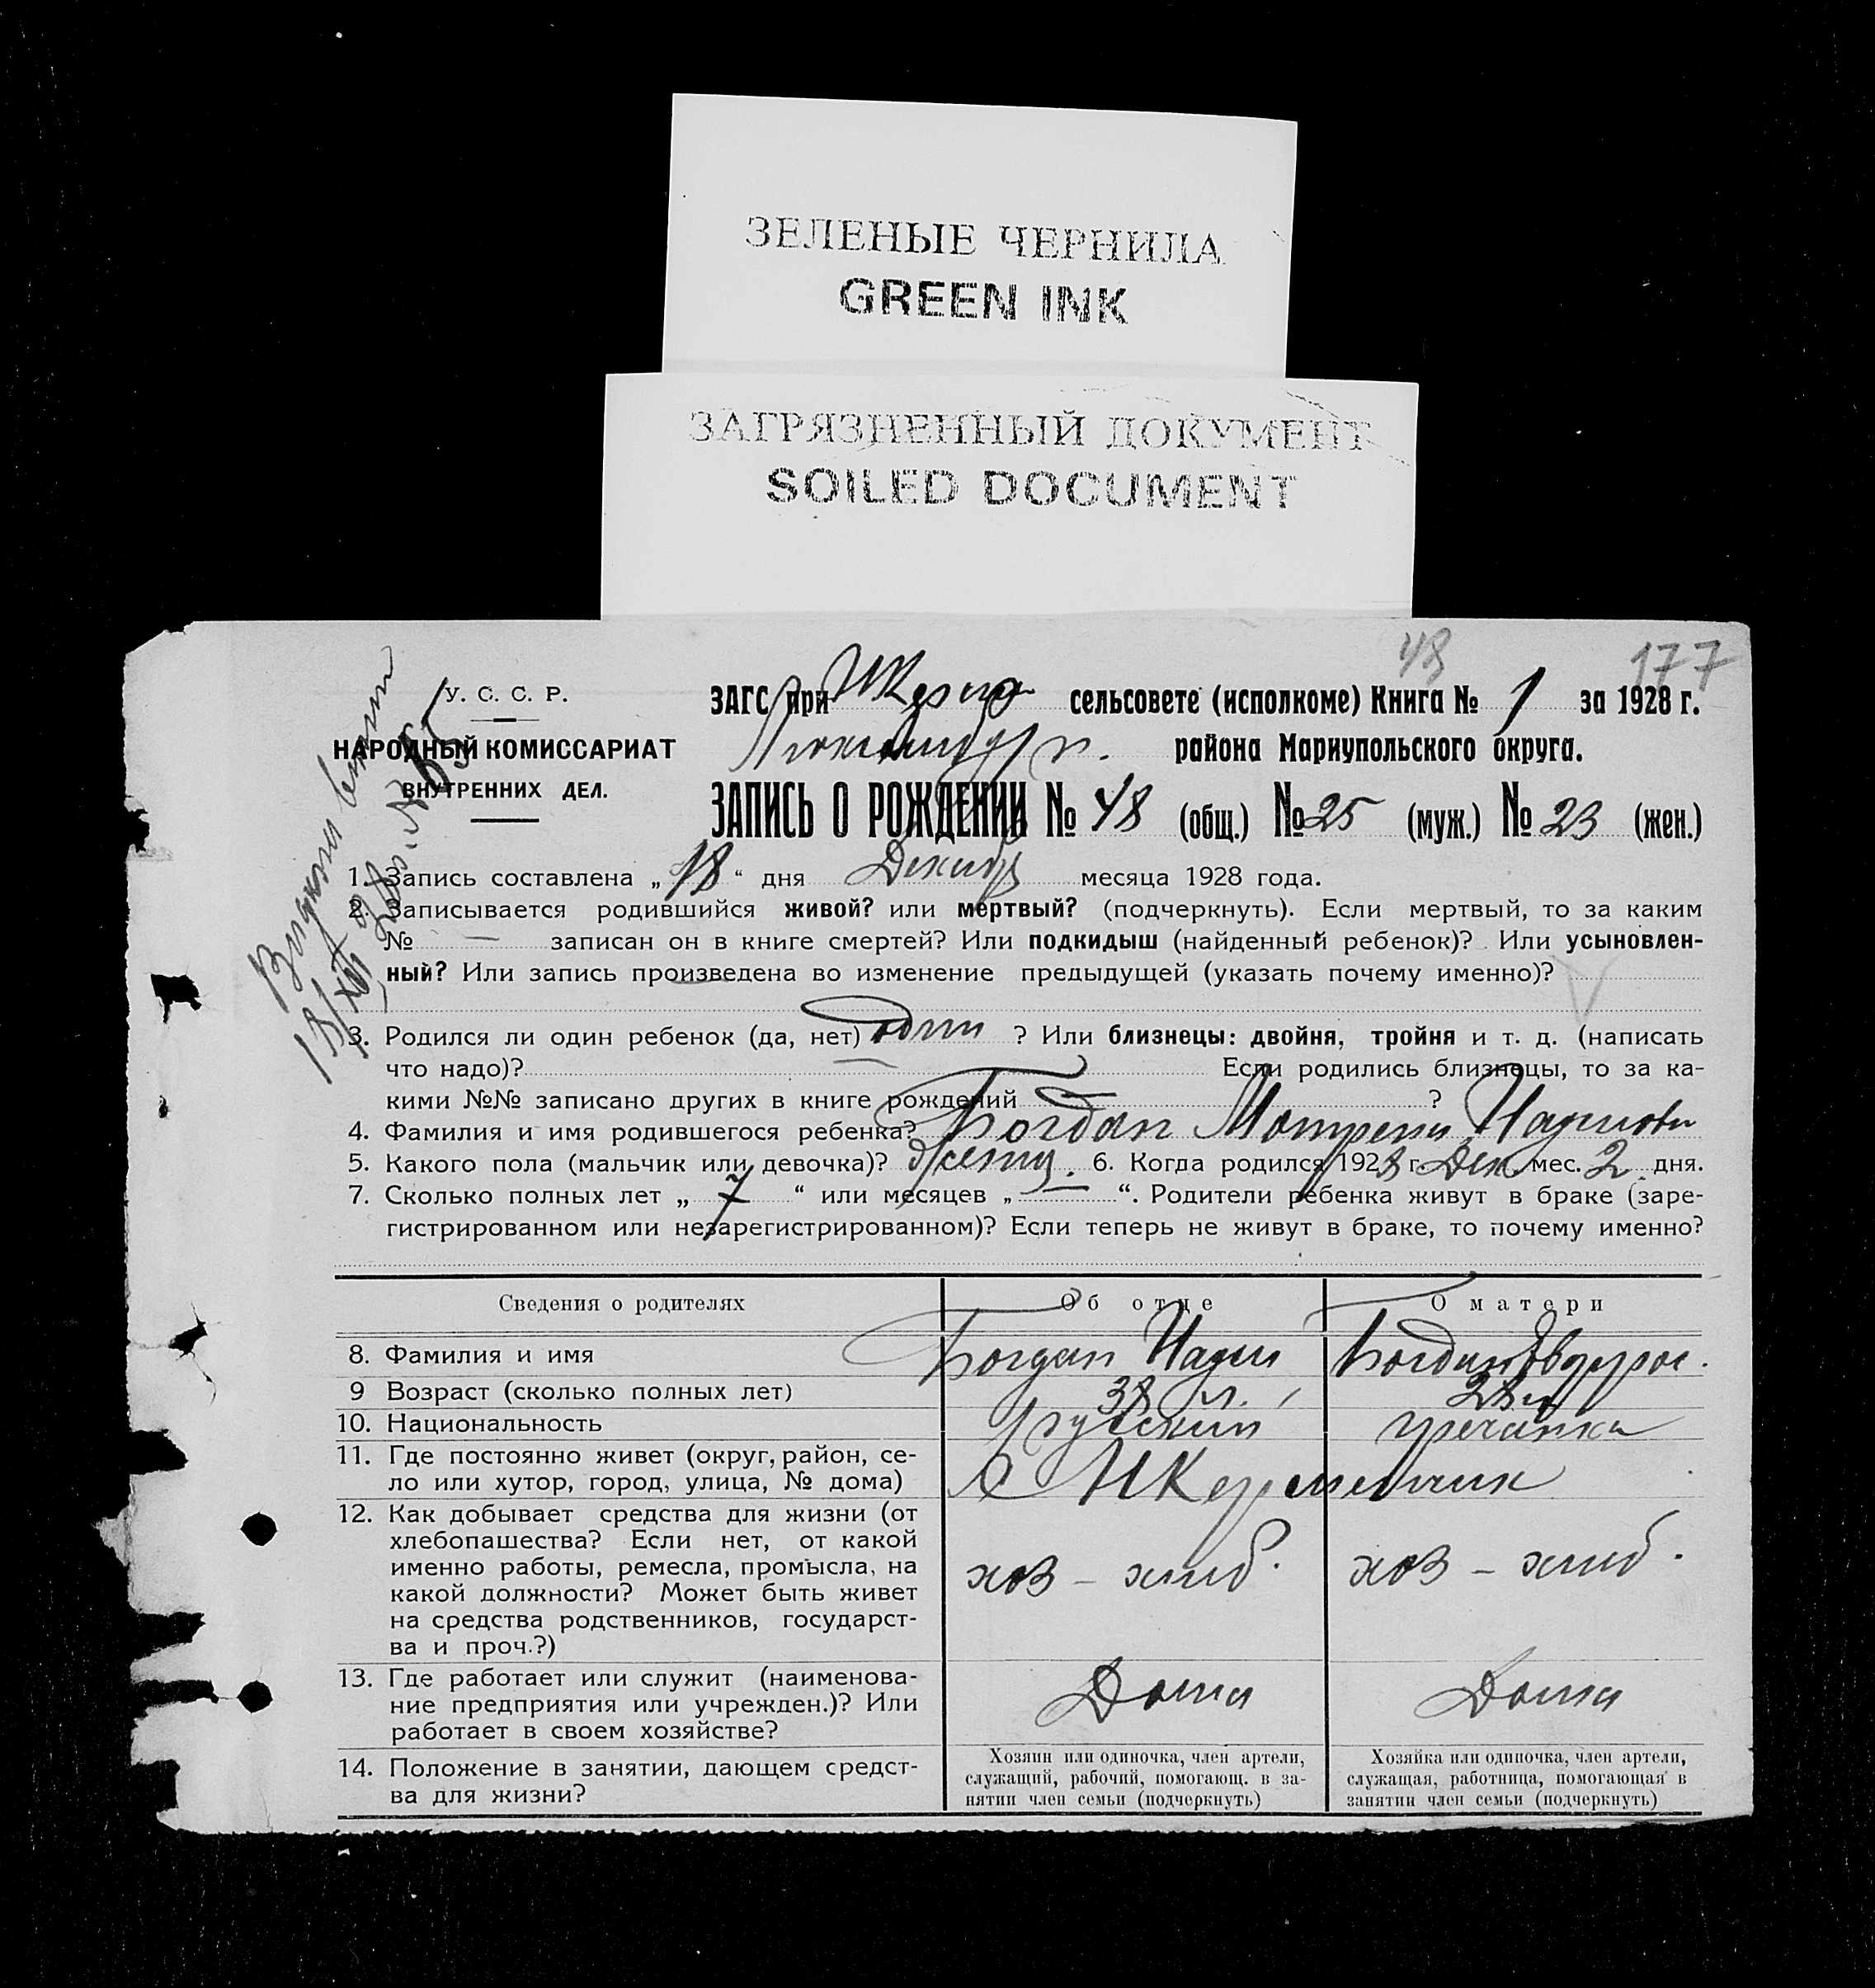 ЗЕЛЕНЫЕ ЧЕРНИЛА
GREEN INK
ЗАГРЯЗНЕННЫЙ ДОКУМЕНТ
SOILED DOCUMENT
48 177
У. С. С. Р.
НАРОДНЫЙ КОМИССАРИАТ
ВНУТРЕННИХ ДЕЛ.
ЗАГС при сельсовете (исполкоме) Книга № 1 за 1928 г.
района Мариупольского округа.
ЗАПИСЬ О РОЖДЕНИИ № 48 (общ.) № 25 (муж.) № 23 (жен.)
1. Запись составлена „18“ дня Декабр месяца 1928 года.
2. Записывается родившийся живой? или мертвый? (подчеркнуть). Если мертвый, то за каким
№ — записан он в книге смертей? Или подкидыш (найденный ребенок)? Или усыновлен-
ный? Или запись произведена во изменение предыдущей (указать почему именно)?
3. Родился ли один ребенок (да, нет) один ? Или близнецы: двойня, тройня и т. д. (написать
что надо)? Если родились близнецы, то за ка-
кими №№ записано других в книге рождений ?
4. Фамилия и имя родившегося ребенка? Богдан
5. Какого пола (мальчик или девочка)? 6. Когда родился 1928 г. Дек. мес. 2 дня.
7. Сколько полных лет „ 7 “ или месяцев „ — “. Родители ребенка живут в браке (заре-
гистрированном или незарегистрированном)? Если теперь не живут в браке, то почему именно?
Сведения о родителях Об отце О матери
8. Фамилия и имя Богдан
9 Возраст (сколько полных лет) 38 л. 28 л
10. Национальность русский гречанка
11. Где постоянно живет (округ, район, се-
ло или хутор, город, улица, № дома)
12. Как добывает средства для жизни (от
хлебопашества? Если нет, от какой
именно работы, ремесла, промысла, на
какой должности? Может быть живет
на средства родственников, государст-
ва и проч.?)
хоз – хлиб. хоз – хлиб.
13. Где работает или служит (наименова-
ние предприятия или учрежден.)? Или
работает в своем хозяйстве?
Дома Дома
14. Положение в занятии, дающем средст-
ва для жизни?
Хозяин или одиночка, член артели,
служащий, рабочий, помогающ. в за-
нятии член семьи (подчеркнуть)
Хозяйка или одиночка, член артели,
служащая, работница, помогающая в
занятии член семьи (подчеркнуть)